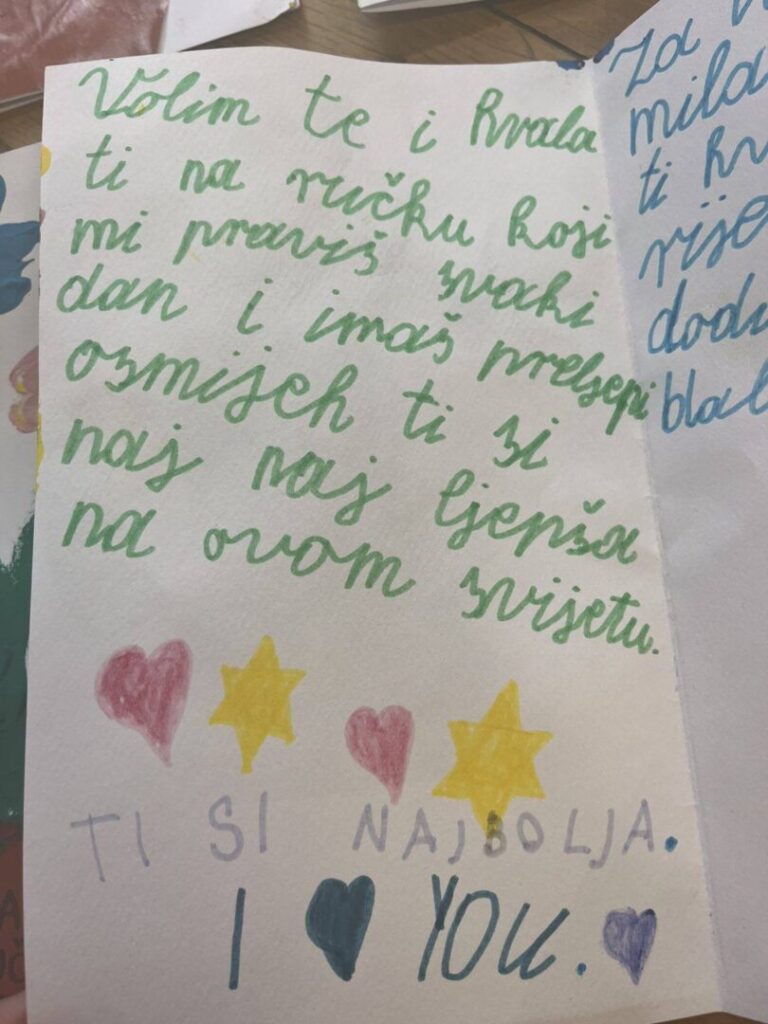 Volim te i hvala
ti na ručku koji
mi praviš svaki
dan i imaš preljepi
osmijeh ti si
naj naj ljepša
na ovom svijetu.
TI SI NAJBOLJA.
I YOU.
Za
ti